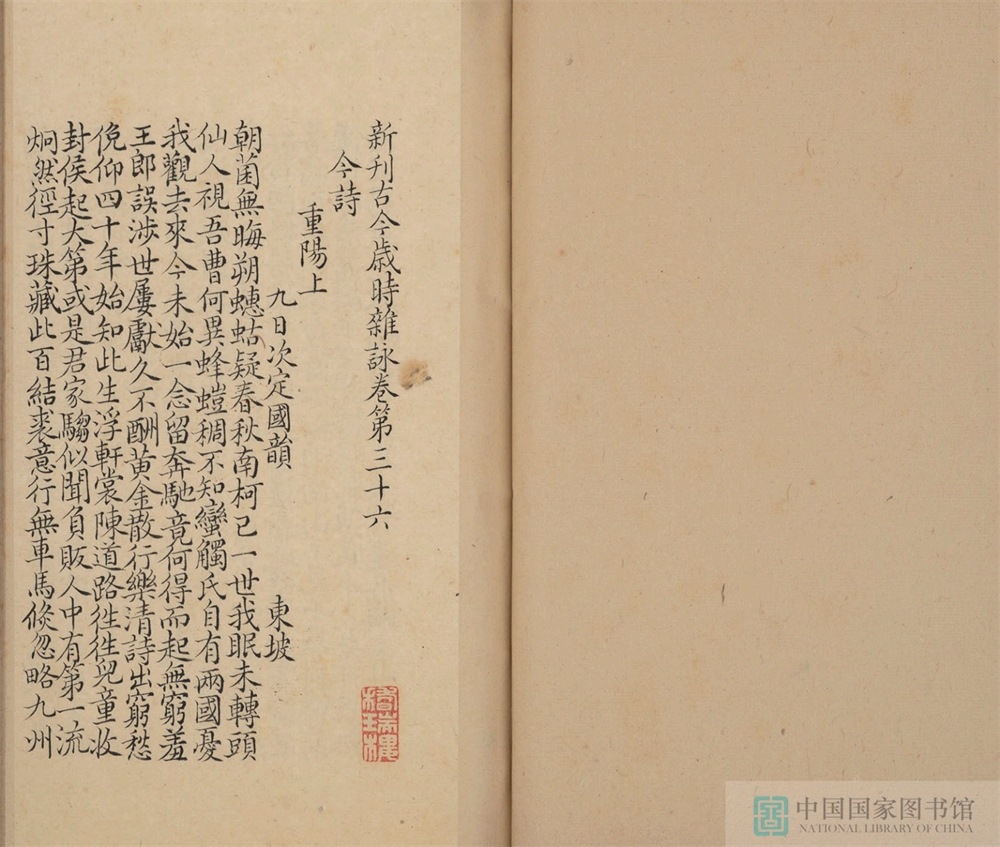 新刊古今歲時雜詠卷第三十六
今詩
重陽上
九日次定國韻 東坡
朝菌無晦朔蟪蛄疑春秋南柯已一世我眠未轉頭
仙人視吾曹何異蜂螘稠不知蠻觸氏自有兩國憂
我觀去來今未始一念留奔馳竟何得而起無窮羞
王郎誤涉世屢獻久不酬黃金散行樂清詩出窮愁
俛仰四十年始知此生浮軒裳陳道路徃徃兒童收
封侯起大第或是君家騶似聞負販人中有第一流
炯然徑寸珠藏此百結裘意行無車馬倐忽略九州
中国国家图书馆
NATIONAL LIBRARY OF CHINA